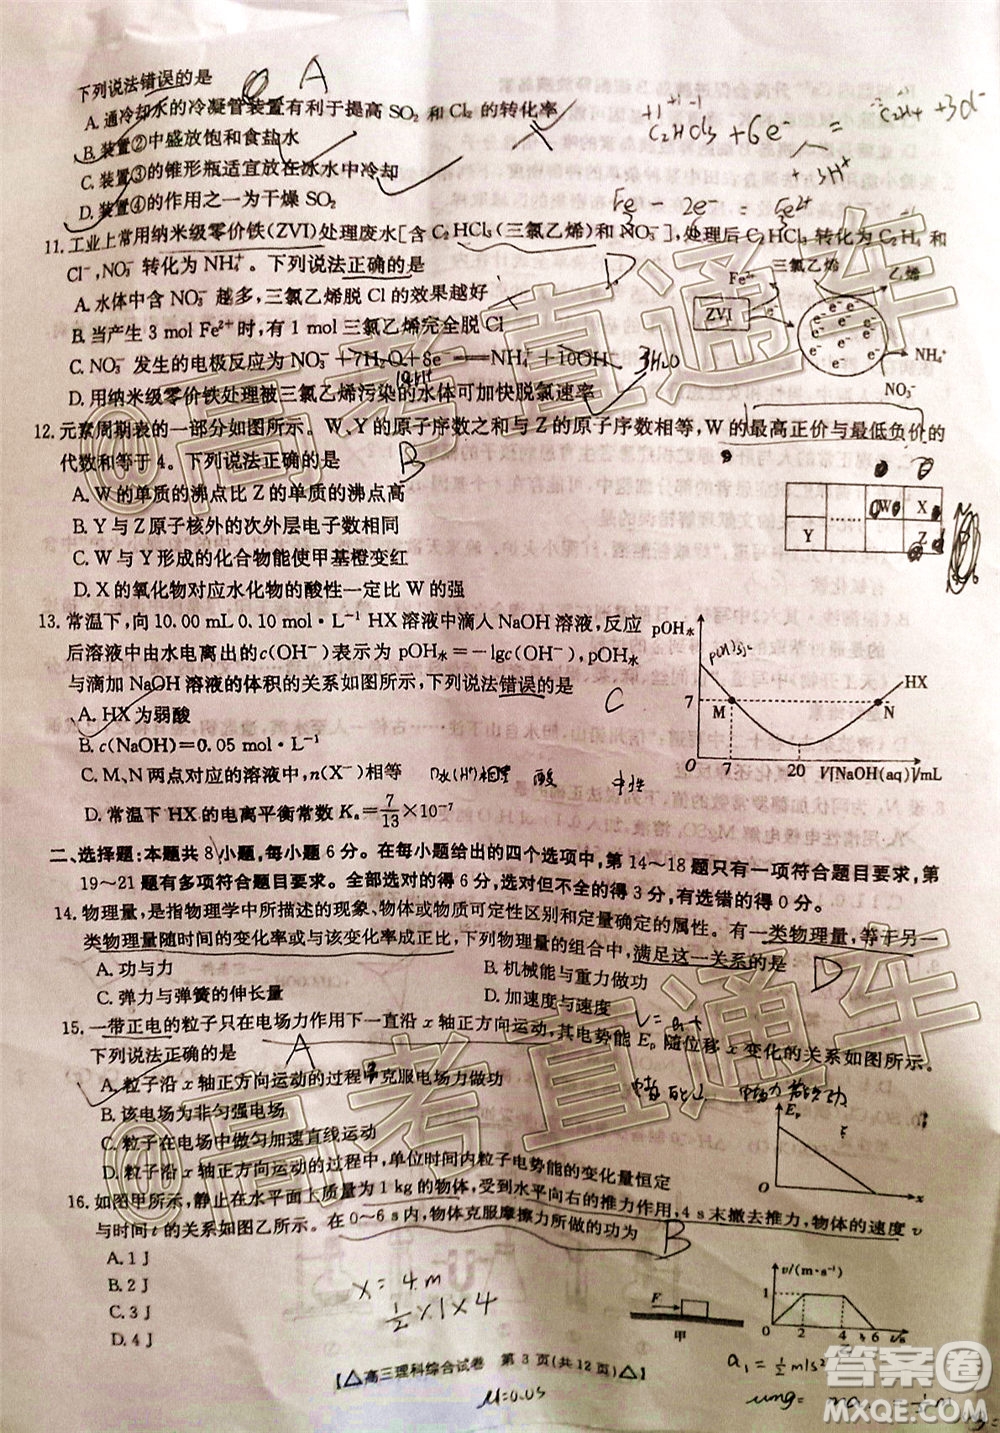 下列说法错误的是 A
A. 通冷却水的冷凝管装置有利于提高 SO₂ 和 Cl₂ 的转化率
B. 装置②中盛放饱和食盐水
C. 装置③的锥形瓶适宜放在冰水中冷却
D. 装置④的作用之一为干燥 SO₂
C₂HCl₃ + 6e⁻ = C₂H₄ + 3Cl⁻
+3H⁺
Fe − 2e⁻ = Fe²⁺
11. 工业上常用纳米级零价铁(ZVI)处理废水[含 C₂HCl₃(三氯乙烯)和 NO₃⁻],处理后 C₂HCl₃ 转化为 C₂H₄ 和
Cl⁻,NO₃⁻ 转化为 NH₄⁺。下列说法正确的是 D
A. 水体中含 NO₃⁻ 越多,三氯乙烯脱 Cl 的效果越好
B. 当产生 3 mol Fe²⁺时,有 1 mol 三氯乙烯完全脱 Cl
C. NO₃⁻ 发生的电极反应为 NO₃⁻+7H₂O+8e⁻=NH₄⁺+10OH⁻
10H⁺ 3H₂O
D. 用纳米级零价铁处理被三氯乙烯污染的水体可加快脱氯速率
三氯乙烯 乙烯
Fe²⁺
ZVI
e⁻ e⁻ e⁻ e⁻ e⁻
NH₄⁺
NO₃⁻
12. 元素周期表的一部分如图所示。W、Y 的原子序数之和与 Z 的原子序数相等,W 的最高正价与最低负价的
代数和等于 4。下列说法正确的是 B
A. W 的单质的沸点比 Z 的单质的沸点高
B. Y 与 Z 原子核外的次外层电子数相同
C. W 与 Y 形成的化合物能使甲基橙变红
D. X 的氧化物对应水化物的酸性一定比 W 的强
Y …… W X
…… Z
13. 常温下,向 10.00 mL 0.10 mol·L⁻¹ HX 溶液中滴入 NaOH 溶液,反应
后溶液中由水电离出的 c(OH⁻)表示为 pOH水=−lgc(OH⁻),pOH水
与滴加 NaOH 溶液的体积的关系如图所示,下列说法错误的是 C
A. HX 为弱酸
B. c(NaOH)=0.05 mol·L⁻¹
C. M、N 两点对应的溶液中,n(X⁻)相等 酸 中性
D. 常温下 HX 的电离平衡常数 Kₐ=7/13×10⁻⁷
pOH水
HX
7 M N
7 20 V[NaOH(aq)]/mL
二、选择题:本题共 8 小题,每小题 6 分。在每小题给出的四个选项中,第 14～18 题只有一项符合题目要求,第
19～21 题有多项符合题目要求。全部选对的得 6 分,选对但不全的得 3 分,有选错的得 0 分。
14. 物理量,是指物理学中所描述的现象、物体或物质可定性区别和定量确定的属性。有一类物理量,等于另一
类物理量随时间的变化率或与该变化率成正比,下列物理量的组合中,满足这一关系的是 D
A. 功与力 B. 机械能与重力做功
C. 弹力与弹簧的伸长量 D. 加速度与速度
15. 一带正电的粒子只在电场力作用下一直沿 x 轴正方向运动,其电势能 Eₚ 随位移 x 变化的关系如图所示。
下列说法正确的是 A
A. 粒子沿 x 轴正方向运动的过程中克服电场力做功
B. 该电场为非匀强电场
C. 粒子在电场中做匀加速直线运动
D. 粒子沿 x 轴正方向运动的过程中,单位时间内粒子电势能的变化量恒定
Eₚ
O x
16. 如图甲所示,静止在水平面上质量为 1 kg 的物体,受到水平向右的推力作用,4 s 末撤去推力,物体的速度 v
与时间 t 的关系如图乙所示。在 0～6 s 内,物体克服摩擦力所做的功为 B
A. 1 J
B. 2 J
C. 3 J
D. 4 J
x = 4m
½×1×4
F
甲
v/(m·s⁻¹)
1
O 2 4 6 t/s
a₁ = ½ m/s²
μmg =
【△高三理科综合试卷 第 3 页(共 12 页)△】
μ=0.05
@高考直通车
@高考直通车
答案圈
MXQE.COM